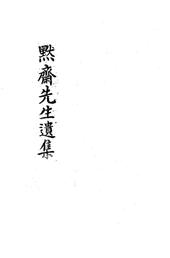 默齋先生遺集